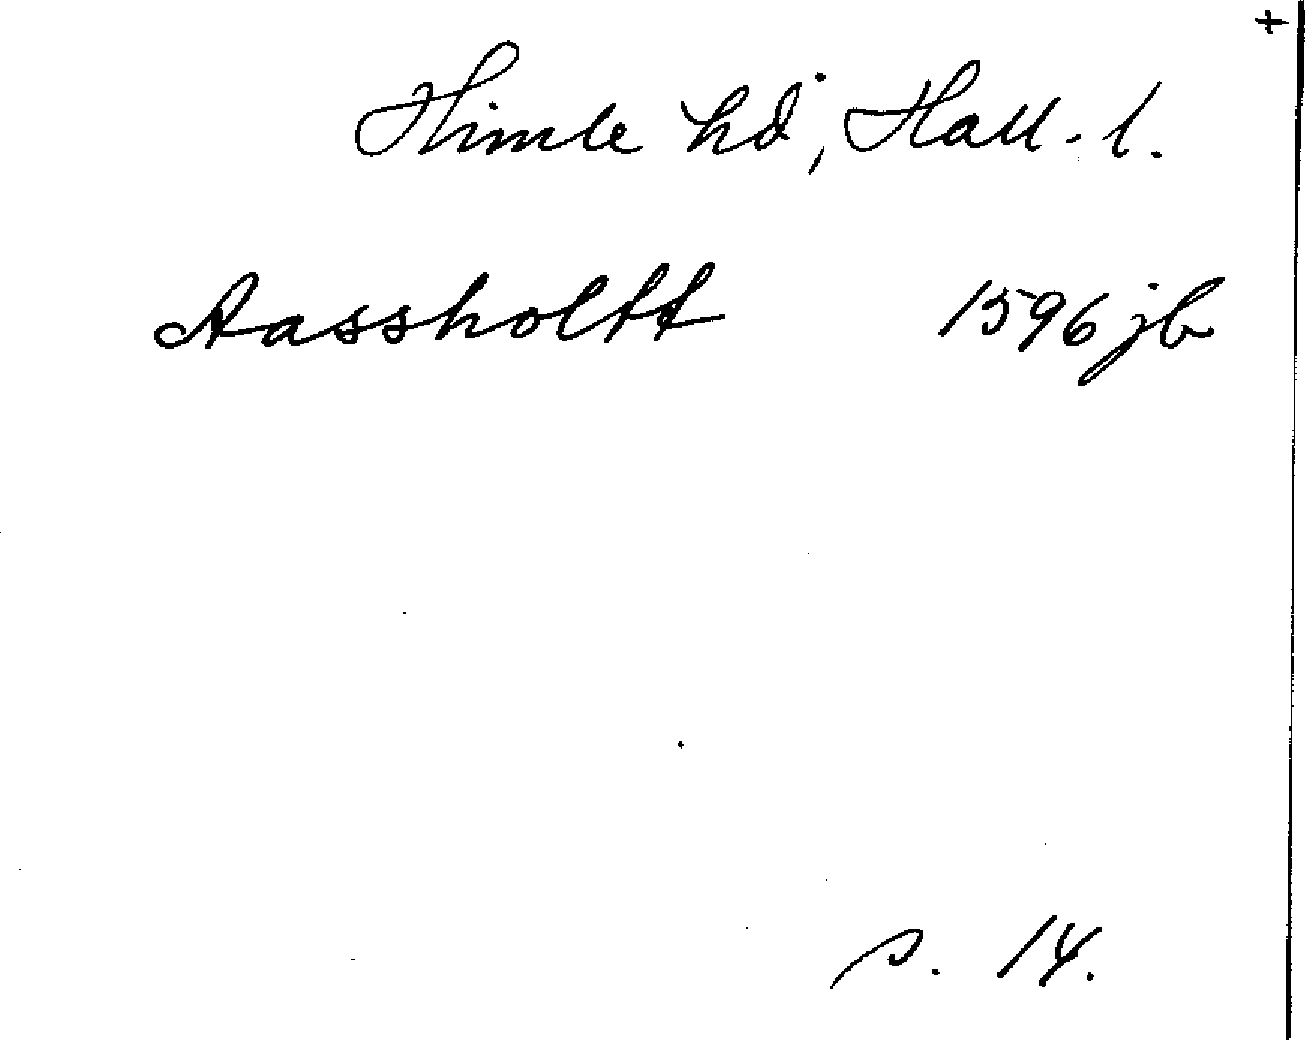 +
Himle hd, Hall. l.
Aassholtt 1596 jb
s. 14.